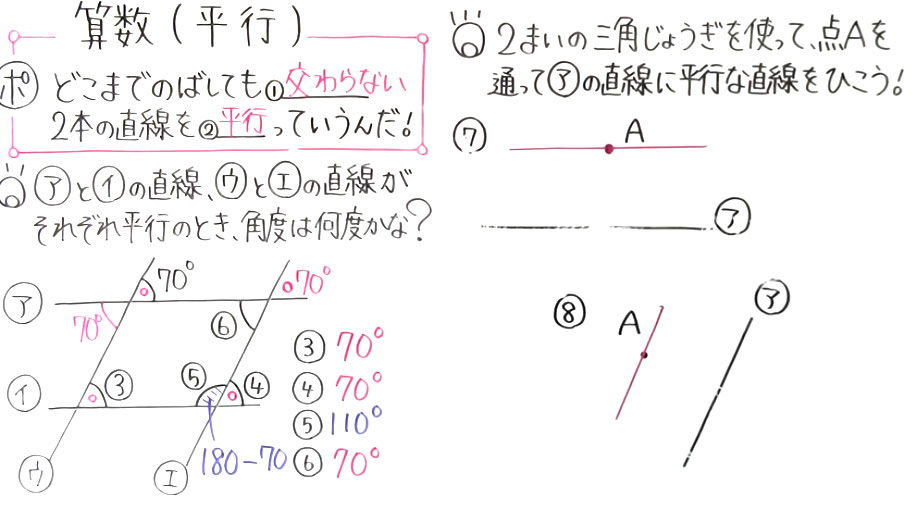 算数(平行)
ポ どこまでのばしても①交わらない
2本の直線を②平行っていうんだ!
㋐と㋑の直線、㋒と㋓の直線が
それぞれ平行のとき、角度は何度かな?
70°
70°
㋐
70°
⑥
③ 70°
㋑
③
⑤
④
④ 70°
⑤ 110°
180-70
⑥ 70°
㋒
㋓
2まいの三角じょうぎを使って、点Aを
通って㋐の直線に平行な直線をひこう!
⑦
A
㋐
⑧
A
㋐